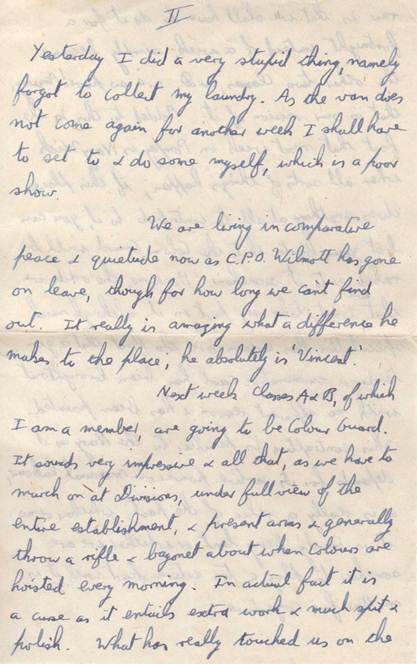 II
Yesterday I did a very stupid thing, namely
forgot to collect my laundry. As the van does
not come again for another week I shall have
to set to & do some myself, which is a poor
show.
We are living in comparative
peace & quietude now as C.P.O. Wilmott has gone
on leave, though for how long we cant find
out. It really is amazing what a difference he
makes to the place, he absolutely is 'Vincent'.
Next week Classes A & B, of which
I am a member, are going to be Colour Guard.
It sounds very impressive & all that, as we have to
march on at Divisions, under full view of the
entire establishment, & present arms & generally
throw a rifle & bayonet about when Colours are
hoisted every morning. In actual fact it is
a curse as it entails extra work & much spit &
polish. What has really touched us on the